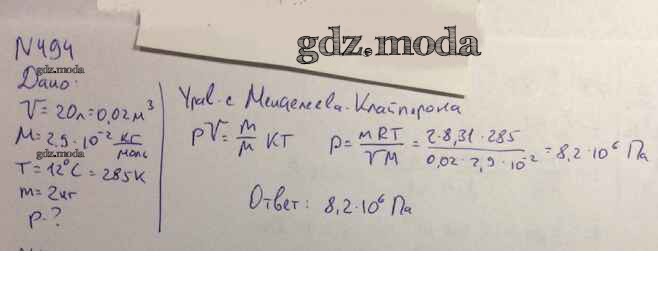 N494
gdz.moda
gdz.moda
Дано:
V = 20л = 0,02м³
M = 2,9·10⁻² кг/моль
gdz.moda
T = 12°C = 285K
m = 2кг
p-?
Урав-е Менделеева-Клайперона
pV = m/M КТ
p = mRT/VM = 2·8,31·285/0,02·2,9·10⁻² = 8,2·10⁶ Па
Ответ: 8,2·10⁶ Па